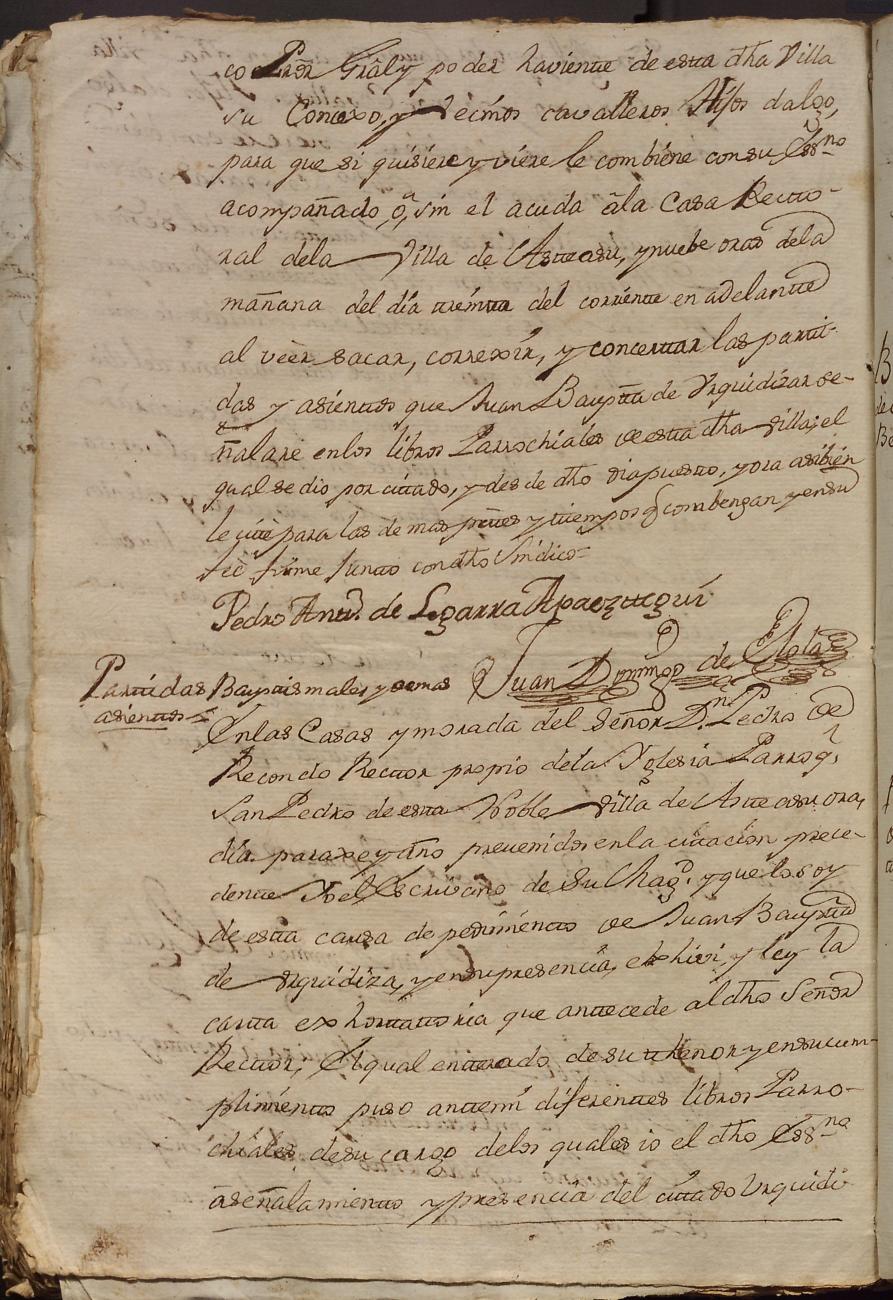 co Prõr Grãl y poder haviente de esta dha Villa
su Conzexo, y Vecinos cavalleros Hijos dalgo,
para que si quisiere y viere le combiene con su Essno
acompañado, ô, sin el acuda âla Casa Recto-
ral dela Villa de Asteasu, ynuebe oras dela
mañana del día treinta del corriente en adelante
al veer sacar, correxir, y concertar las parti-
das y asientos que Juan Bauptta de Urquidizar se-
ñalare enlos libros Parrochiales de esta dha Villa; el
qual se dio por citado, y des de dho dia puesto, y ora asibien
le cité para los de mas puntes y tiempos q combengan y ensu
feè firme Junto con dho Sindico=
Pedro Antto. de Legarra Apaeztegui
Juan Domingo de Elola
Partidas Baptismales, y demas
asientos=
Enlas Casas y morada del Señor Dn. Pedro de
Recondo Rector propio dela Yglesia Parroql.
San Pedro de esta Noble Villa de Asteasu ora,
día paraxe y año prevenidos enla citacion prece-
dente Yo el Escrivano de Su Magd. y que lo soy
de esta causa de pedimento de Juan Bauptta
de Urquidiza, y ensu presencia, exhivi, y ley la
carta exhortatoria que antecede al dho Señor
Rector; El qual enterado de su thenor y ensu cum-
plimiento puso antemi diferentes libros Parro-
chiales desu cargo delos quales io el dho Essno
a señalamiento y presencia del citado Urquidi-